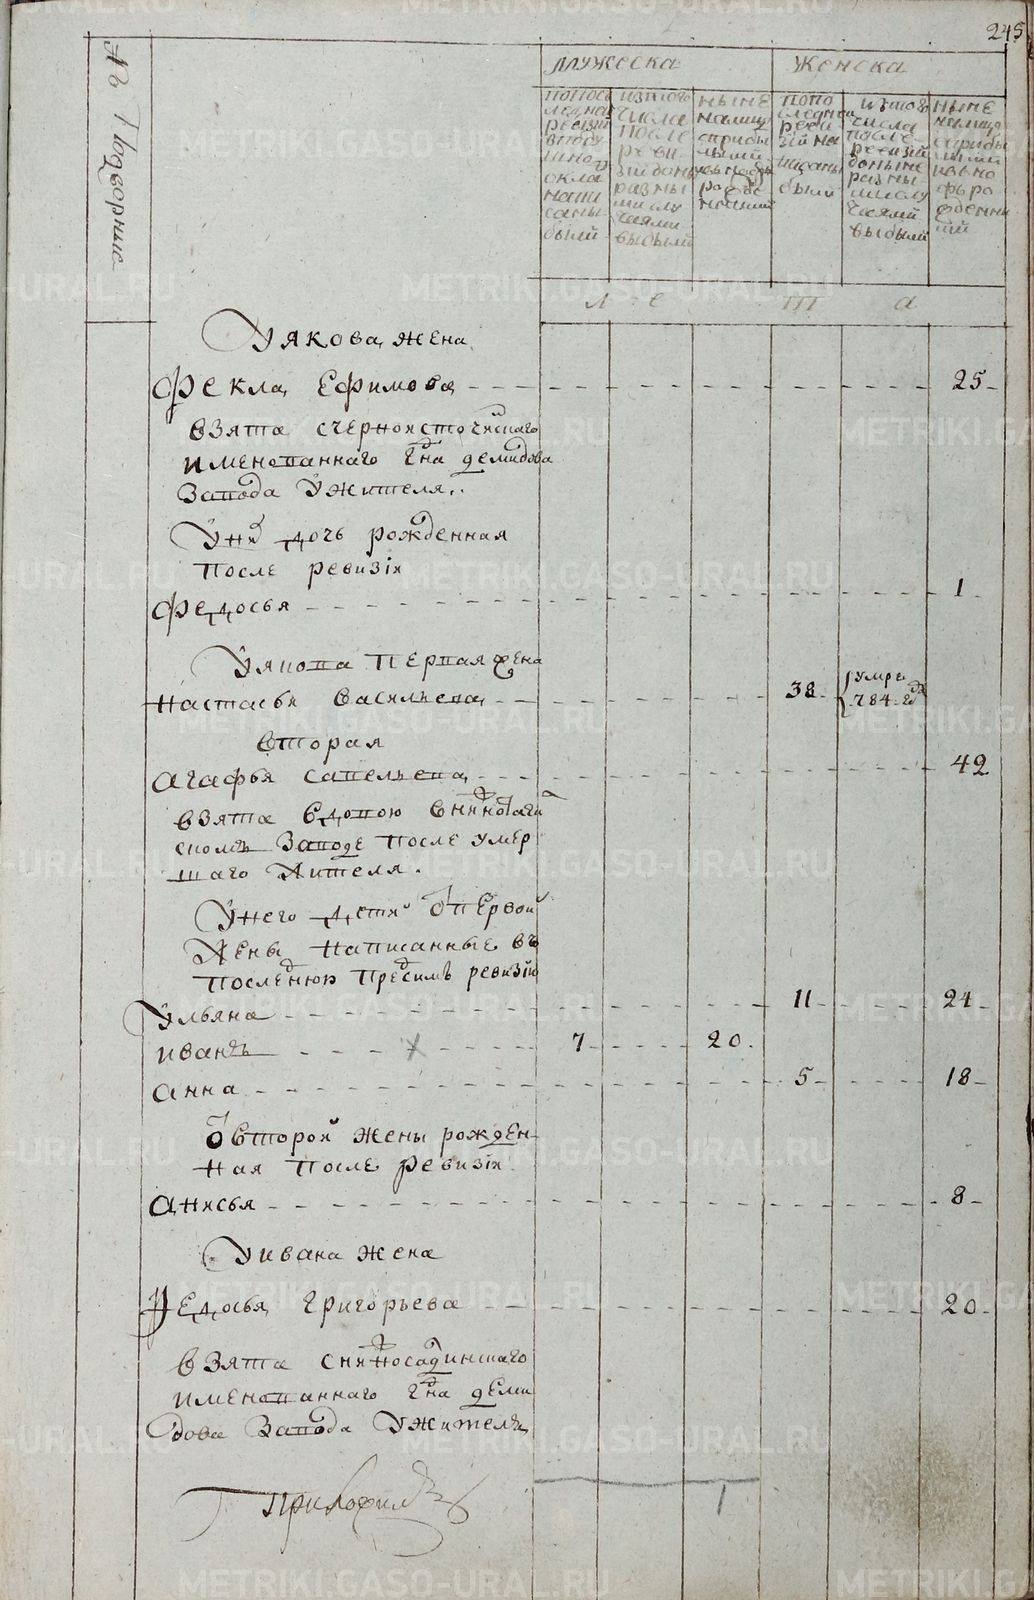 245
№ Подворные
мужеска
женска
попос
ледней
ревизи
изтого
числа
после
реви
разны
ныне
налицо
сприбы
лыми
попо
следней
реви
зии на
писаны
были
изтого
числа
после
ревизии
доныне
разны
выбыли
ныне
налицо
сприбы
лыми
ле та
Уякова жена
Фекла Ефимова 25
взята счерноисточинскаго
именованнаго Гдна демидова
завода Ужителя
Унихъ дочь рожденная
после ревизiи
Федосья 1
Уякова первая жена
Настасья Васильева 38 умре 784 году
вторая
Агафья Савельева 42
взята вдовою внижнотаги
скомъ заводе после умер
шаго жителя.
Унего дети отпервой
жены написанные въ
последнюю предсимъ ревизiю
Ульяна 11 24
иванъ 7 20
анна 5 18
Отвторой жены рожден
ная после ревизiи
анисья 8
Уивана жена
Федосья григорьева 20
взята снижносалдинскаго
именованнаго Гдна деми
дова завода Ужителя
1
METRIKI.GASO-URAL.RU